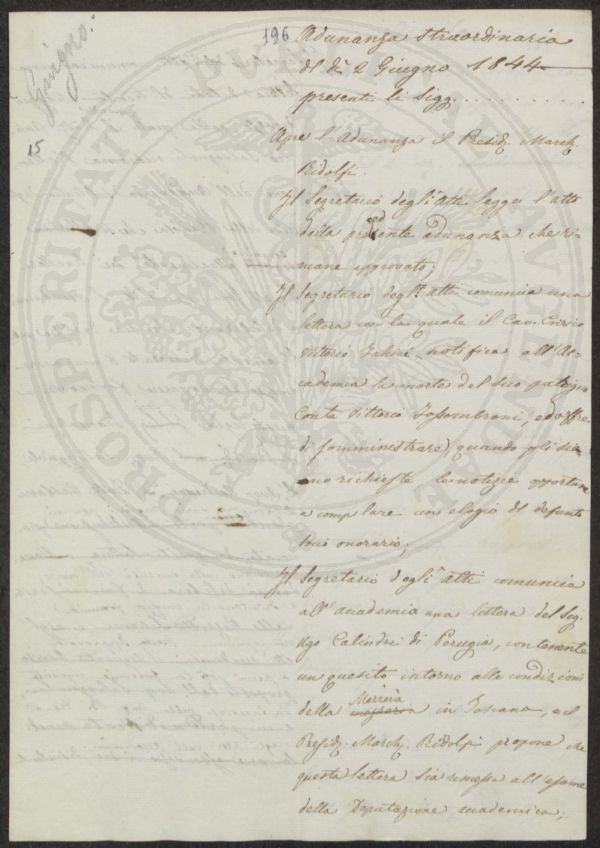 Giugno.
196
15
Adunanza straordinaria
del dì 2 Giugno 1844
presenti li Sigg. . . . . . . . . . .
Apre l'adunanza il Presid. March.
Ridolfi.
Il Segretario degli atti legge l'atto
della precedente adunanza che ri-
mane approvato;
Il Segretario degli atti comunica una
lettera con la quale il Cav.
Vittorio notifica all'Ac-
cademia la morte del suo patrigno
Conte Vittorio Fossombroni, ed offre
di somministrare, quando gli sia-
no richieste le notizie opportune
a compilare un elogio del defunto
socio onorario;
Il Segretario degli atti comunica
all'accademia una lettera del Sig.
Ugo Calindri di Perugia, contenente
un quesito intorno alle condizioni
della Mezzeria in Toscana, e il
Presid. March. Ridolfi propone che
questa lettera sia rimessa all'esame
della Deputazione accademica;
PROSPERITATI PUBLICAE AUGENDAE